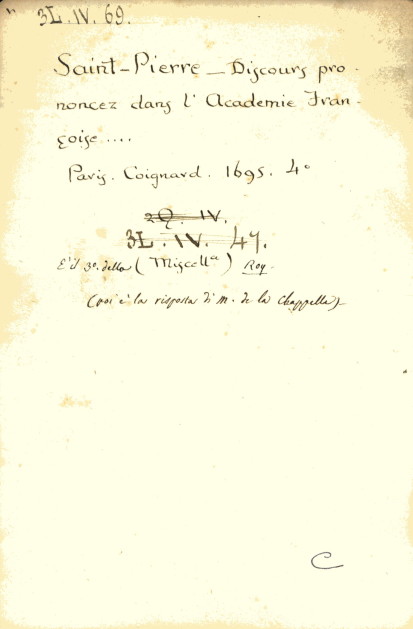 3L. IV. 69.
Saint-Pierre — Discours pro-
noncez dans l' Academie Fran-
çoise....
Paris. Coignard. 1695. 4°
2Q. IV.
3L. IV. 47.
E' il 3°. della (Miscellª) Roy.
(poi è la risposta di M. de la Chappella)
C